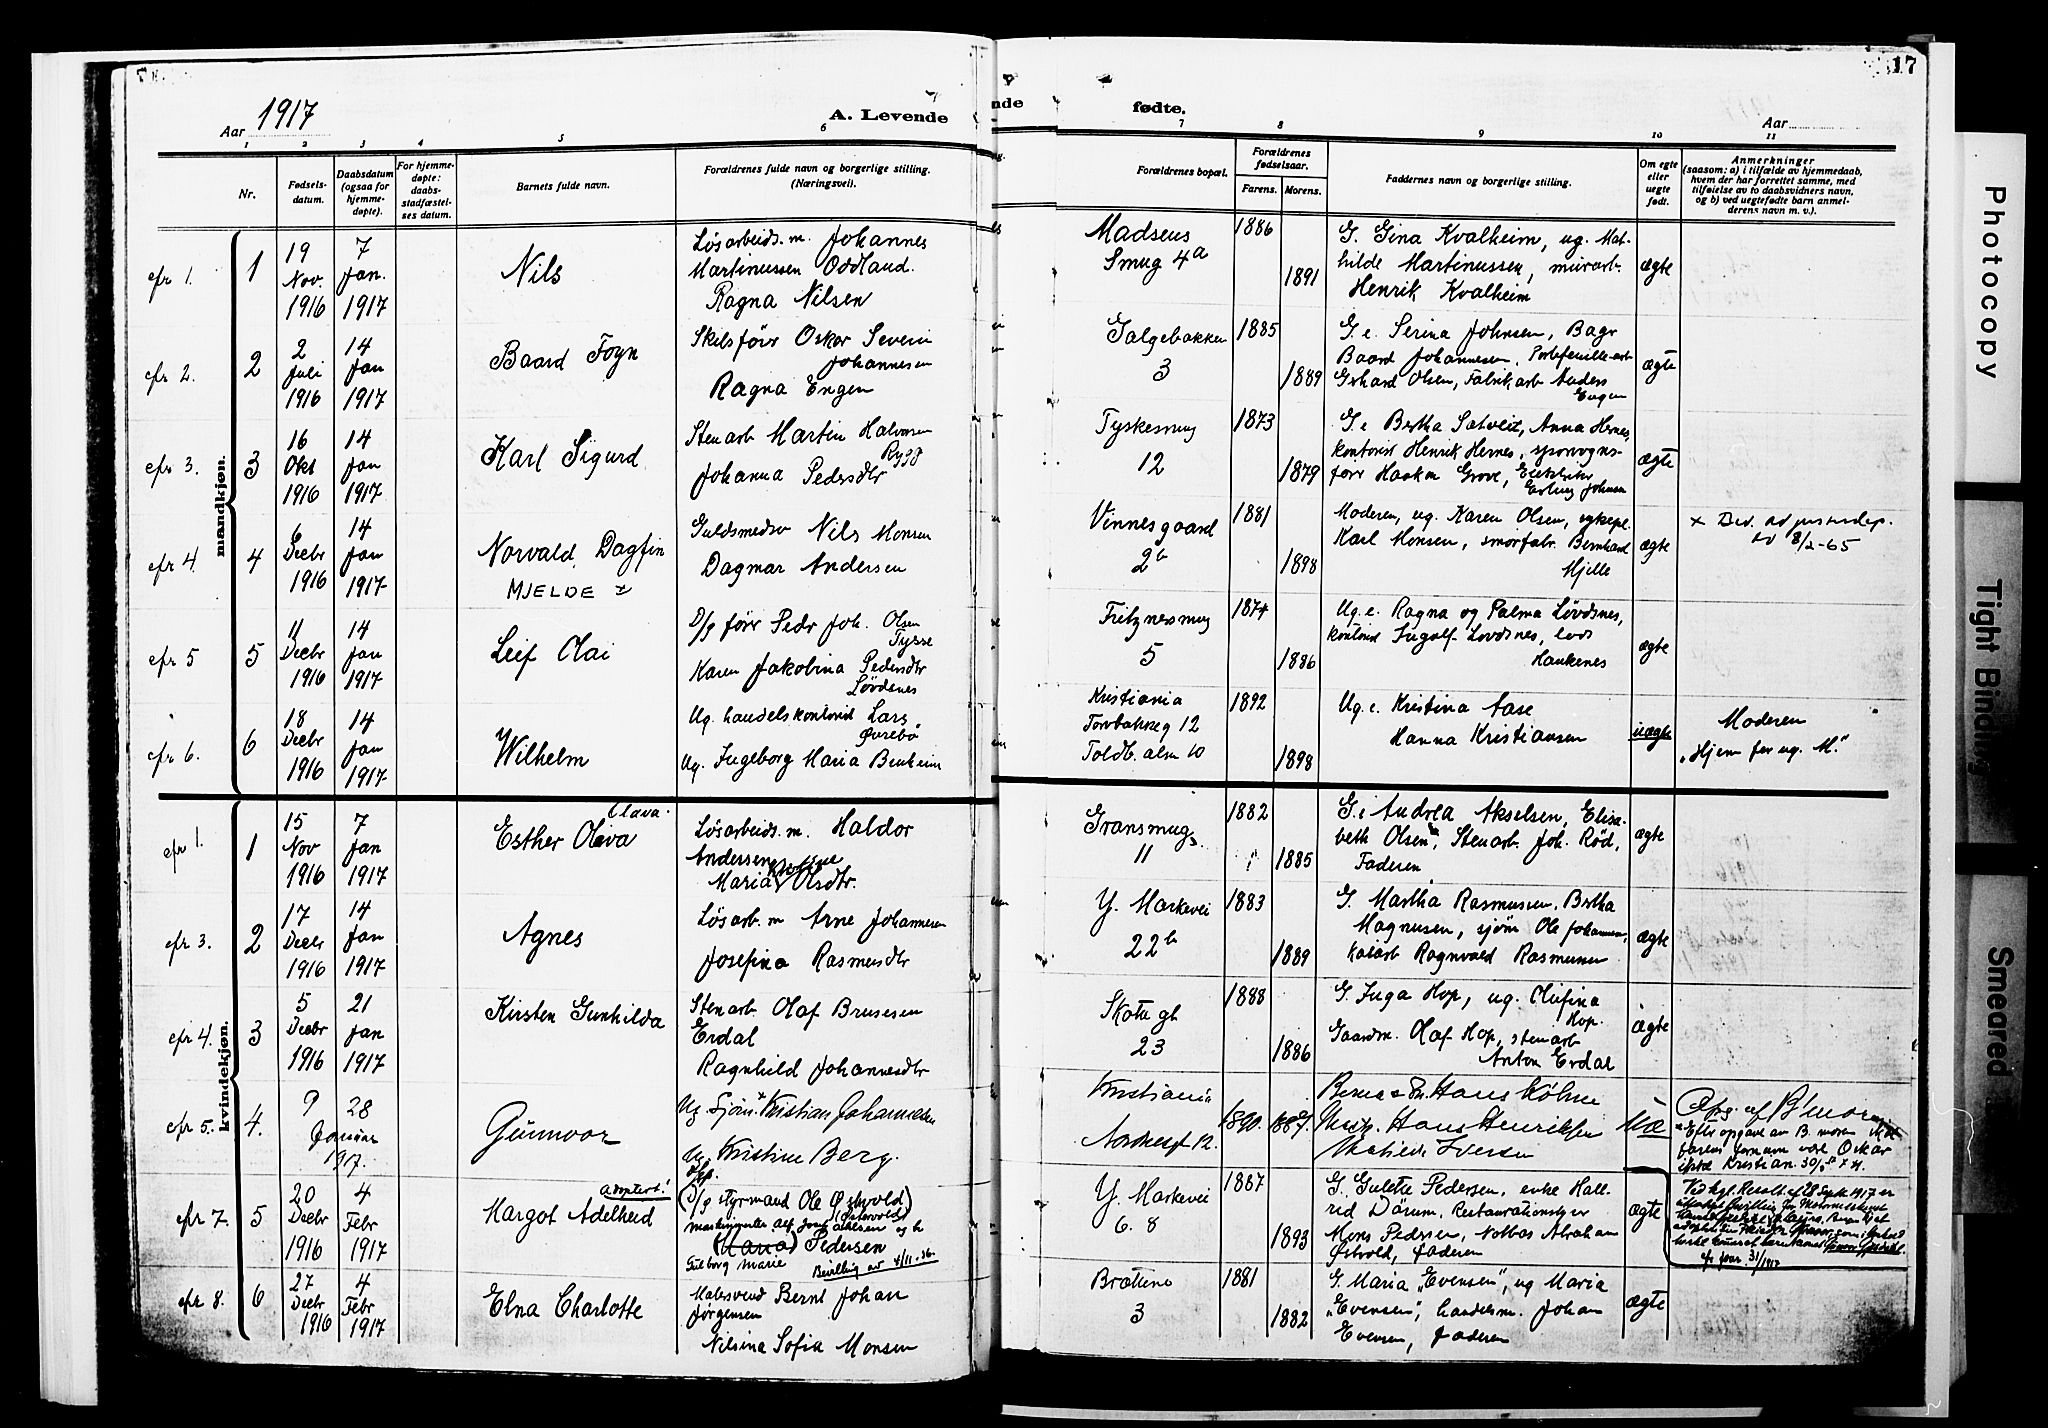 17
Aar 1917
A. Levende
fødte.
Aar
1 2 3 4 5 6 7 8 9 10 11
Nr.
Fødsels-
datum.
Daabsdatum
(ogsaa for
hjemme-
døpte).
For hjemme-
døpte:
daabs-
stadfæstel-
ses datum.
Barnets fulde navn.
Forældrenes fulde navn og borgerlige stilling.
(Næringsvei).
Forældrenes bopæl.
Forældrenes
fødselsaar.
Farens. Morens.
Faddernes navn og borgerlige stilling.
Om egte
eller
uegte
født.
Anmerkninger
(saasom: a) i tilfælde av hjemmedaab,
hvem der har forrettet samme, med
tilføielse av to daabsvidners navn,
og b) ved uegtefødte barn anmel-
derens navn m. v.).
mandkjøn.
cfr 1.
1
19
Nov.
1916
7
Jan.
1917
Nils
Løsarbeids.m. Johannes
Martinussen Oddland.
Ragna Nilsen
Madsens
Smug 4a
1886
1891
G. Gina Kvalheim, ug. Mat-
hilde Martinussen, murarb.
Henrik Kvalheim
ægte
cfr 2.
2
2
Juli
1916
14
Jan
1917
Baard Foyn
Skibsfører Oskar Severin
Johannesen
Ragna Engen
Galgebakken
3
1885
1889
G. e. Serina Johnsen, Bager
Baard Johannesen, Portefeuille-arb
Gerhard Olsen, Fabrikarb Anders
Engen
ægte
cfr 3.
3
16
Okt
1916
14
Jan
1917
Karl Sigurd
Stenarb Martin Halvorsen
Rygg
Johanna Pedersdtr
Tyskesmug
12
1873
1879
G. e Bertha Satveit, Anna Hernes,
kontorist Henrik Hernes, sporvogns-
fører Haakon Grove, Elektriker
Erling Johnsen
ægte
cfr 4.
4
6
Decbr
1916
14
Jan
1917
Norvald Dagfin
MJELDE x
Guldsmedsv Nils Monsen
Dagmar Andersen
Vinnesgaard
2b
1881
1898
Moderen, ug. Karen Olsen, sykepl.
Karl Monsen, smørfabr. Bernhard
Mjelle
ægte
x Bev. av justisdep.
av 8/2-65
cfr 5
5
11
Decbr
1916
14
Jan
1917
Leif Olai
D/s fører Peder Joh. Olsen
Tysse
Karen Jakobina Pedersdtr
Løvdsnes
Fritznersmug
5
1874
1886
Ug. e. Ragna og Palma Løvdsnes,
kontorist Ingolf Lovdsnes, lods
Haukenes
ægte
cfr 6.
6
18
Decbr
1916
14
Jan
1917
Wilhelm
Ug. handelskontorist Lars
Øvrebø
Ug. Ingeborg Maria Benheim
Kristiania
Torvbakkeg 12
Toldb. alm 10
1892
1898
Ug. e. Kristina Aase
Hanna Kristiansen
uægte
Moderen
"Hjem for ug. M."
kvindekjøn.
cfr 1.
1
15
Nov
1916
7
Jan
1917
Olava.
Esther Oleva
Løsarbeids.m. Haldor
Andersen
Maria Olsdtr.
Gransmug
11
1882
1885
G. e Andrea Akselsen, Elisa-
beth Olsen, Stenarb. Joh. Rød,
Faderen
ægte
cfr 3.
2
17
Decbr
1916
14
Jan
1917
Agnes
Løsarb. m Arne Johannesen
Josefina Rasmusdtr
Y. Markevei
22b
1883
1889
G. Martha Rasmussen, Bertha
Magnusen, sjøm Ole Johannesen,
Ragnvald Rasmussen
ægte
cfr 4.
3
5
Decbr
1916
21
Jan
1917
Kirsten Gunhilda
Stenarb. Olaf Brusesen
Erdal
Ragnhild Johannesdtr
Skotegt
23
1888
1886
G. Inga Hop, ug. Olufina
Hop.
Gaardm. Olaf Hop, stenarb
Anton Erdal
ægte
cfr 5.
4.
9
Januar
1917.
28
Gunvor
Ug Sjøm.x Kristian Johannesen
Ug. Kristine Berg.
Kristiania
12.
1890.
1887.
Hans Köhne
Hans Henriksen
Mathilde Iversen
Uæ
Opg. af B'mor
x Efter opgave av B. moren skal
barnefarens fornavn være Oskar
ikke Kristian.
cfr 7.
5
20
Decbr
1916
4
Febr
1917
adoptert!
Margot Adelheid
(D/s styrmand Ole Østvold)
(Maria) Pedersen
Bevilling av 4/11.36.
Y. Markevei
6.8
1887
1893
G. Gulette Pedersen, enke Hall-
rid Dørum, Restaurationsbyer
Mons Pedersen, Notbas Abraham
Østvold, Faderen
ægte
Ved kgl. Resol. af 28 Septr. 1917 er
cfr 8.
6
27
Decbr
1916
4
Febr
1917
Elna Charlotte
Malersvend Bernt Johan
Jørgensen
Nilsina Sofia Monsen
Brøttene
3
1881
1882
G. Maria "Evensen", ug Maria
"Evensen", handelsm. Johan
Evensen, Faderen
ægte
Photocopy
Tight Binding
Smeared